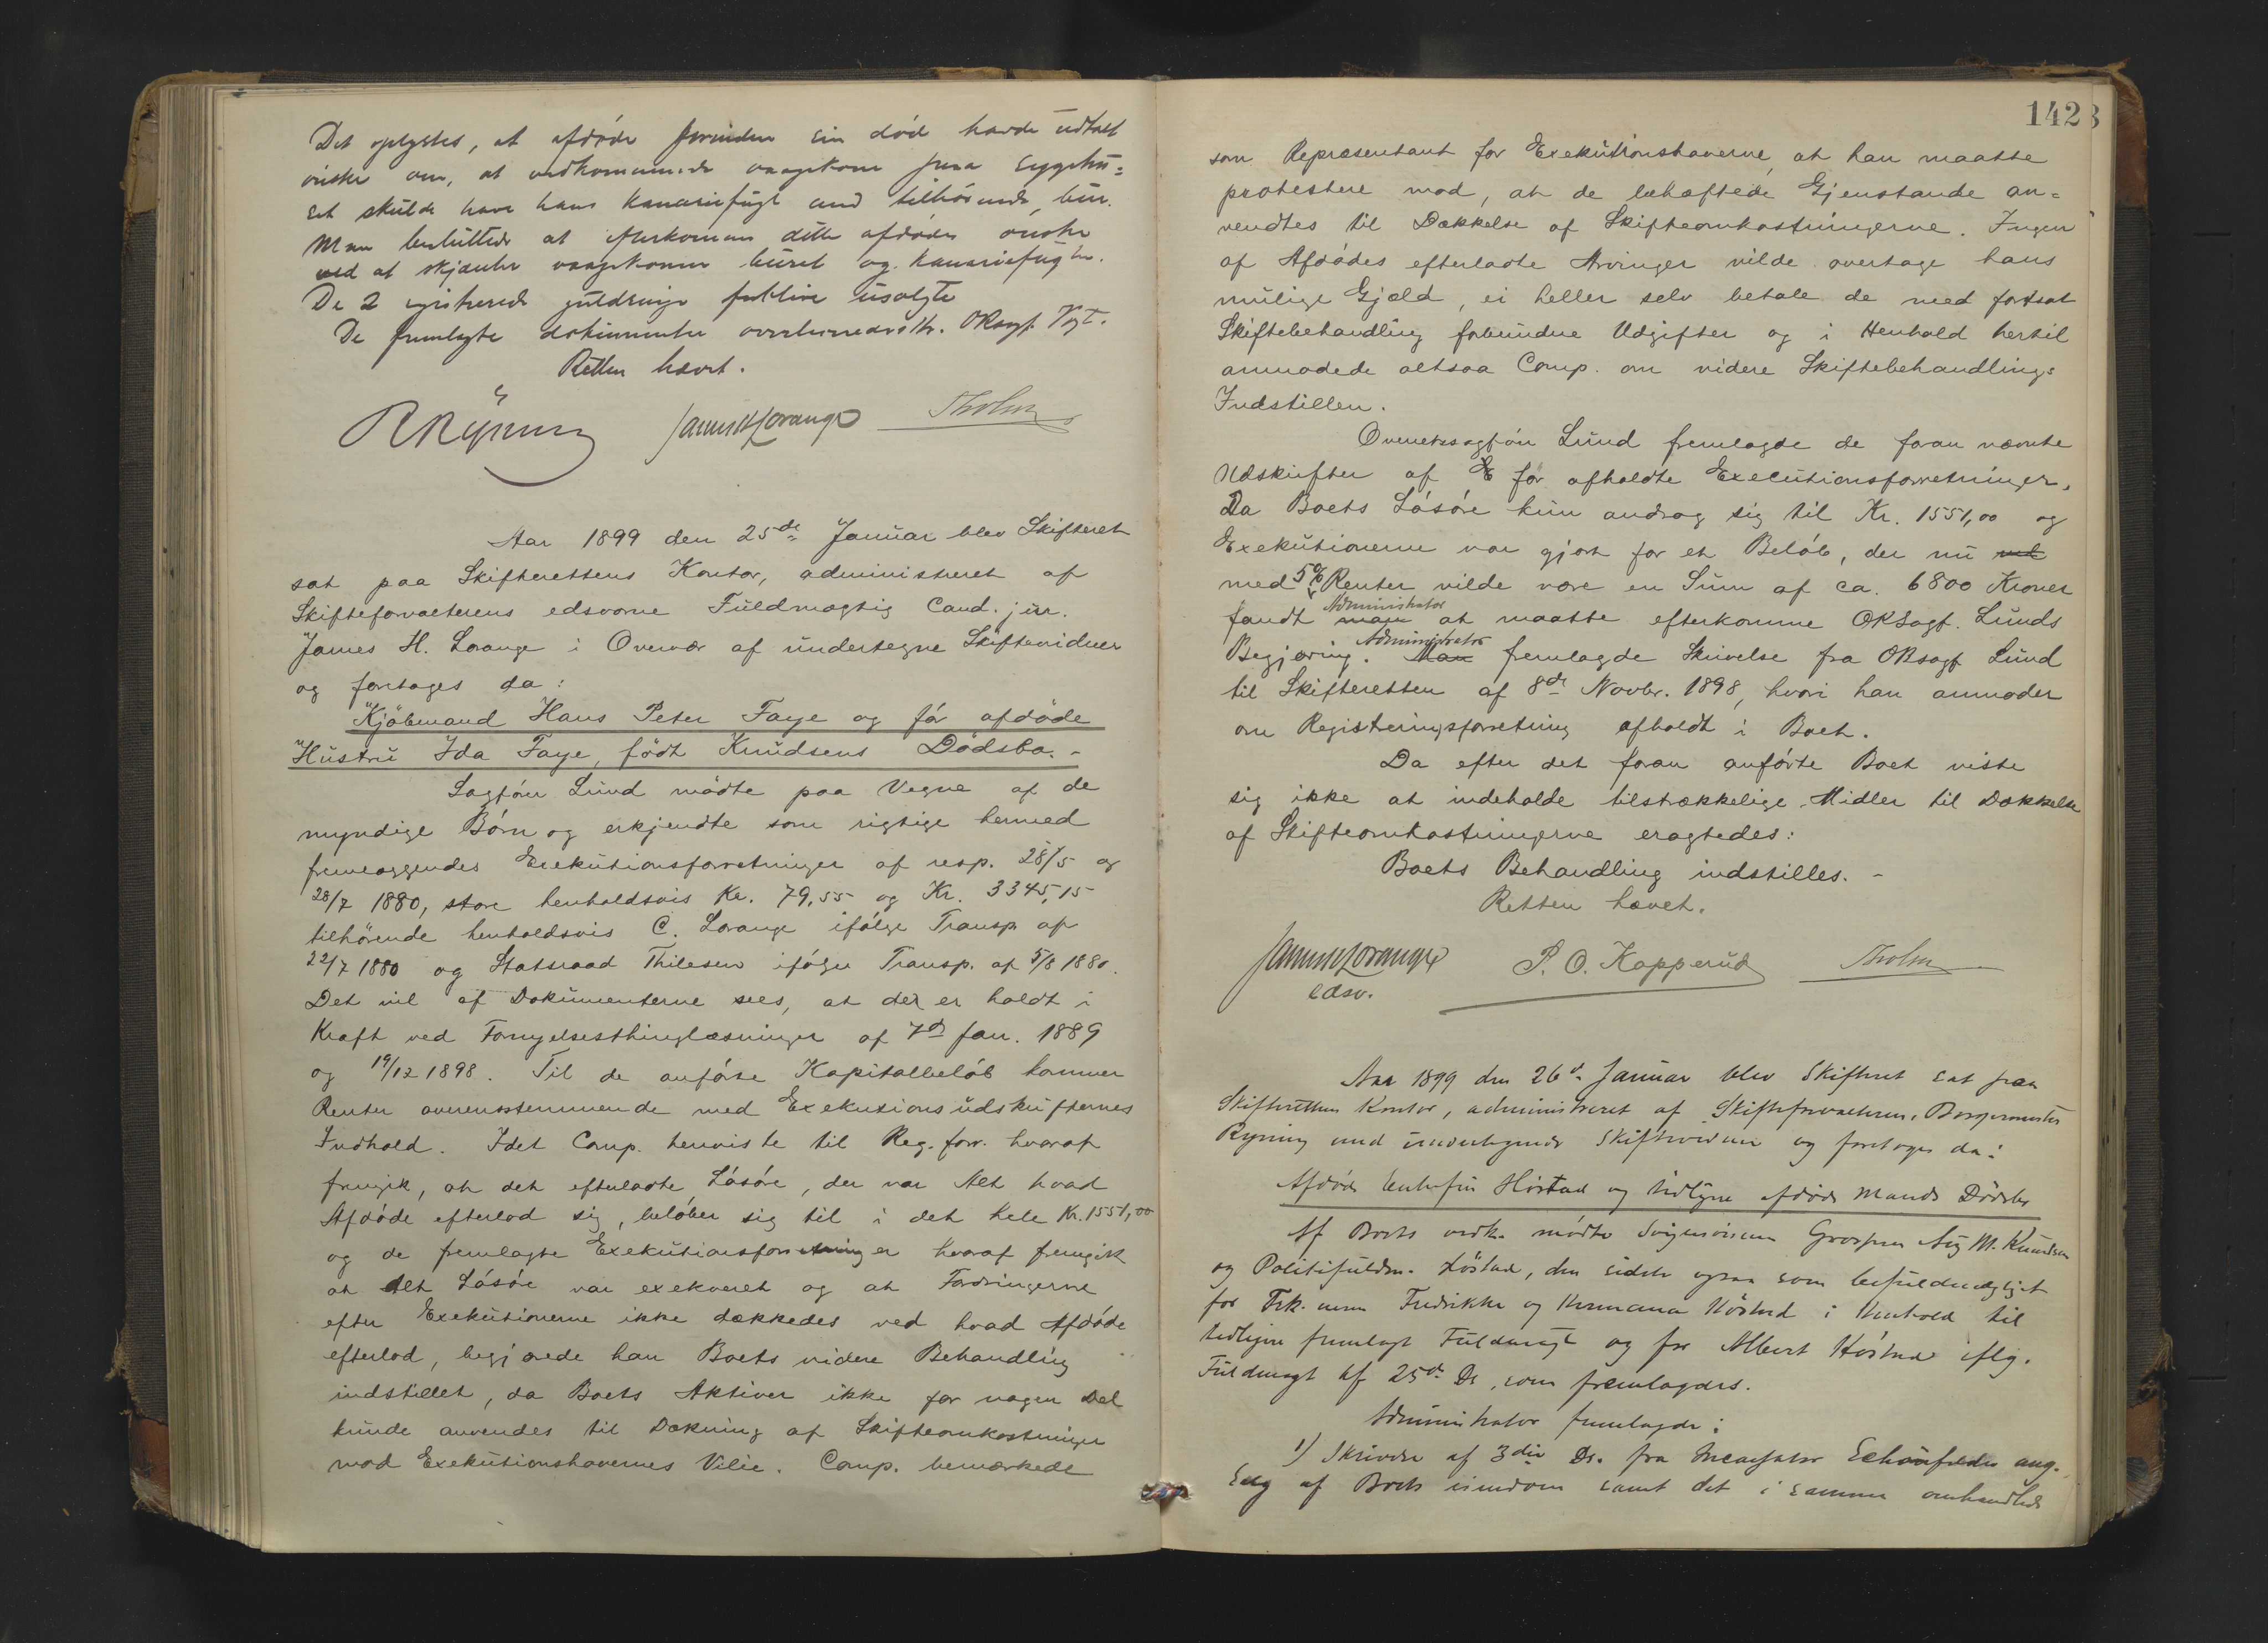 Det oplystes, at afdøde forinden sin død havde udtalt
ønske om, at vedkommende vaagekone fra sygehu=
set skulde have hans kanariefugl med tilhørende bur.
Man besluttede at efterkomme dette afdødes ønske
ved at skjænke vaagekonen buret og kanariefuglen.
De 2 registrerede guldringe forblive usolgte
De fremlagte dokumenter overleveredes Hr. ORsagf. Vogt.
Retten hævet.
R Ryning James H Lorange Tholm
Aar 1899 den 25de Januar blev Skifteret
sat paa Skifterettens Kontor, administreret af
Skifteforvalterens edsvorne Fuldmægtig Cand. jur.
James H. Lorange i Overvær af undertegne Skiftevidner
og foretages da:
Kjøbmand Hans Peter Faye og før afdøde
Hustru Ida Faye, født Knudsens Dødsbo.-
Sagfører Lund mødte paa Vegne af de
myndige Børn og erkjendte som rigtige hermed
fremlæggendes Exekutionsforretninger af resp. 28/5 og
28/7 1880, store henholdsvis Kr. 79,55 og Kr. 3345,15
tilhørende henholdsvis C. Lorange ifølge Transp. af
22/7 1880 og Statsraad Thilesen ifølge Transp. af 5/8 1880.
Det vil af Dokumenterne sees, at der er holdt i
Kraft ved Fornyelsesthinglæsninger af 7de Jan. 1889
og 19/12 1898. Til de anførte Kapitalbeløb kommer
Renter overensstemmende med Exekutionsudskrifternes
Indhold. Idet Comp. henviste til Reg. forr. hvoraf
fremgik, at det efterladte Løsøre, der var Alt hvad
Afdøde efterlod sig, beløber sig til i det hele Kr. 1551,00
og de fremlagte Exekutionsforretninger hvoraf fremgik
at Alt Løsøre var exekveret og at Fordringerne
efter Exekutionerne ikke dækkedes ved hvad Afdøde
efterlod, begjærede han Boets videre Behandling
indstillet, da Boets Aktiver ikke for nogen Del
kunde anvendes til Dækning af Skifteomkostninger
mod Exekutionshavernes Vilie. Comp. bemærkede
1428
som Repræsentant for Exekutionshaverne, at han maatte
protestere mod, at de behæftede Gjenstande an=
vendtes til Dækkelse af Skifteomkostningerne. Ingen
af Afdødes efterladte Arvinger vilde overtage hans
mulige Gjæld, ei heller selv betale de med fortsat
Skiftebehandling forbundne Udgifter og i Henhold hertil
anmodede altsaa Comp. om videre Skiftebehandlings
Indstillen.
Overretssagfører Lund fremlagde de foran nævnte
Udskrifter af E før afholdte Executionsforretninger.
Da Boets Løsøre kun androg sig til Kr. 1551,00 og
Exekutionerne var gjort for et Beløb, der nu
med 5% Renter vilde være en Sum af ca. 6800 Kroner
Administrator
fandt man at maatte efterkomme ORSagf. Lunds
Administrator
Begjæring. Man fremlagde Skrivelse fra ORsagf. Lund
til Skifteretten af 8de Novbr. 1898, hvori han anmoder
om Registeringsforretning afholdt i Boet.
Da efter det foran anførte Boet viste
sig ikke at indeholde tilstrækkelige Midler til Dækkelse
af Skifteomkostningerne eragtedes:
Boets Behandling indstilles.-
Retten hævet.
James H Lorange P. O. Kopperud Tholm
edsv.
Aar 1899 den 26de Januar blev Skifteret sat paa
Skifterettens Kontor, administreret af Skifteforvalteren, Borgermester
Ryning med undertegnede Skiftevidner og foretoges da:
Afdøde Høstad og tidligere afdøde Mands Dødsbo
Af Boets vedk. mødte Svigersønnen Grosserer Aug M. Knudsen
og Politifuldm. Høstad, den sidste ogsaa som befuldmægtiget
for Frk. Fredrikke og Høstad i Henhold til
tidligere fremlagt Fuldmagt og for Albert Høstad iflg.
Fuldmagt af 25de Ds, som fremlagdes.
Administrator fremlagde:
1) Skrivelse af 3die Ds. fra ang.
Salg af Boets eiendom samt det i samme omhandlede